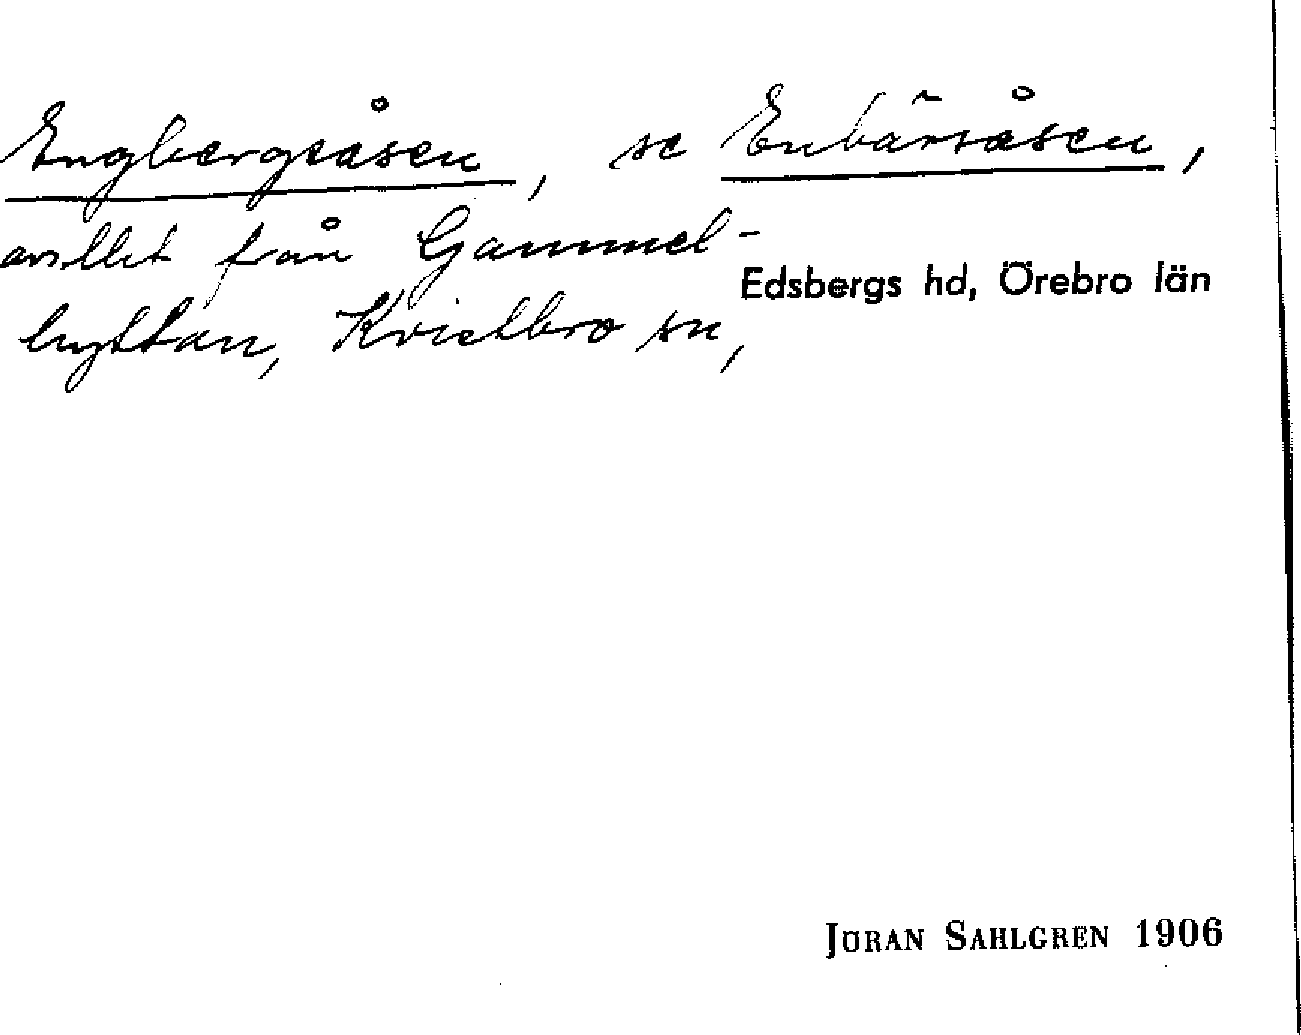 Engbergsåsen, se Enbärsåsen,
avsillet från Gammel-
hyttan, Kvistbro sn,
Edsbergs hd, Örebro län
JÖRAN SAHLGREN 1906